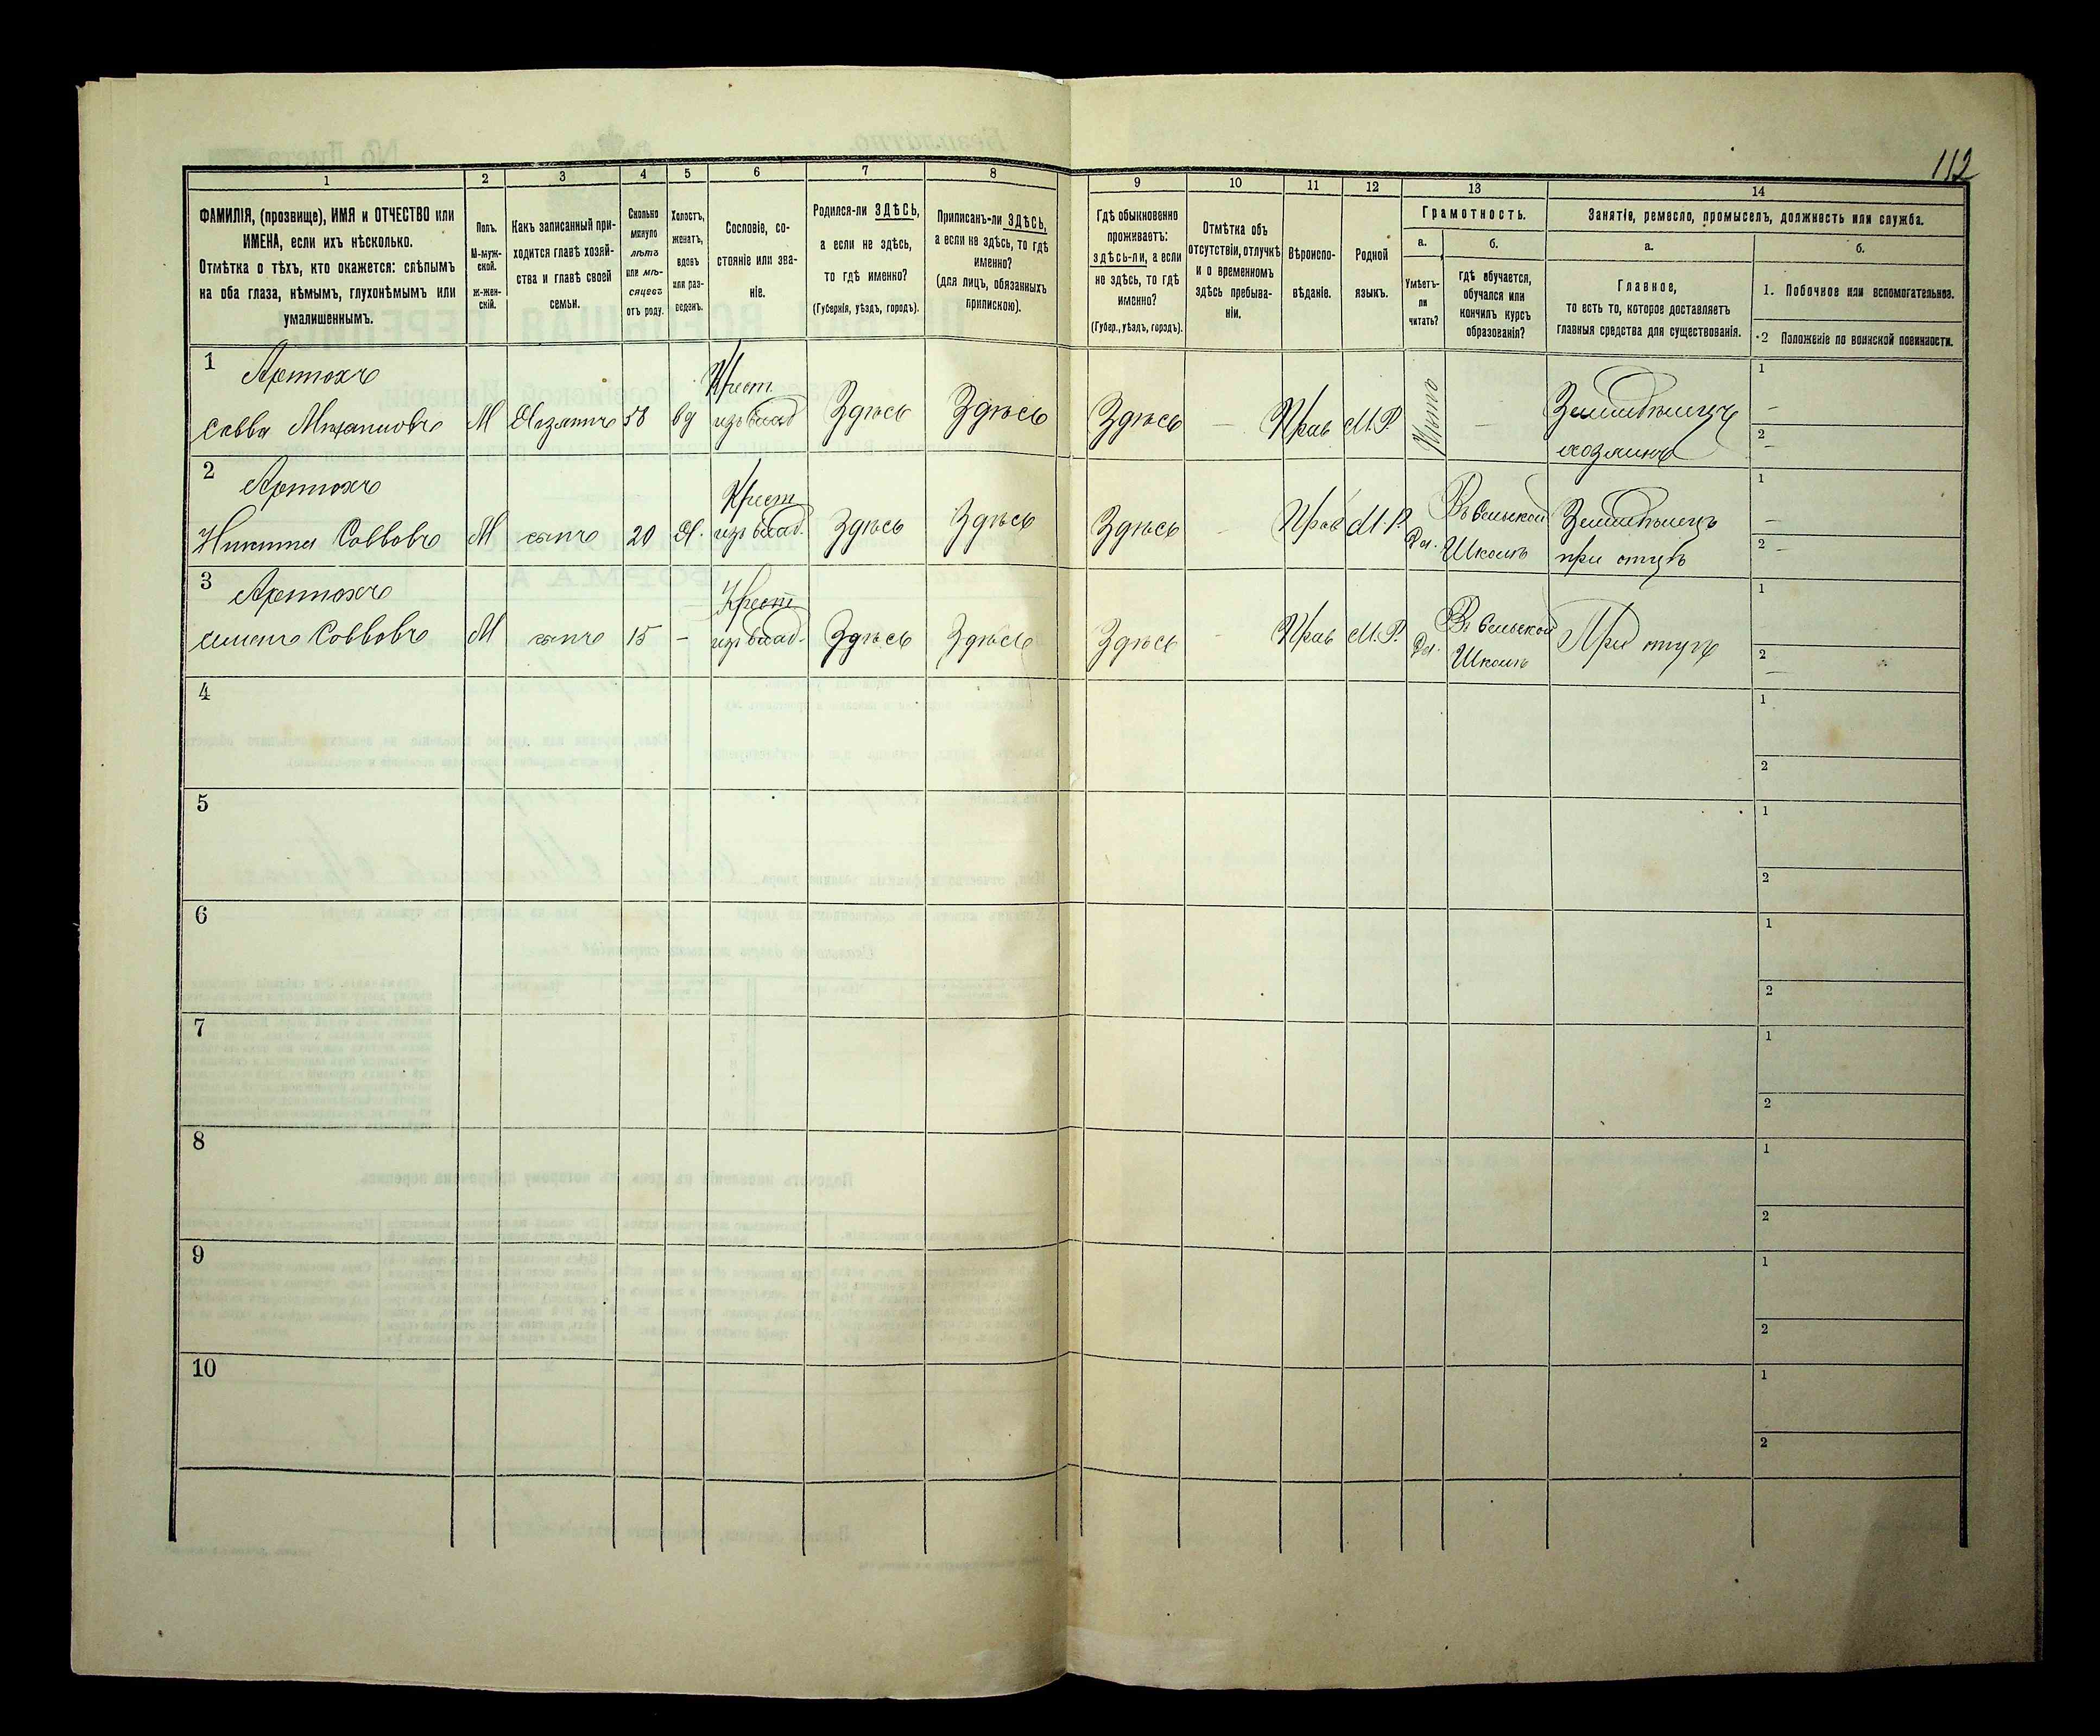 112
1
2
3
4
5
6
7
8
9
10
11
12
13
14
ФАМИЛІЯ, (прозвище), ИМЯ и ОТЧЕСТВО или
ИМЕНА, если ихъ нѣсколько.
Отмѣтка о тѣхъ, кто окажется: слѣпымъ
на оба глаза, нѣмымъ, глухонѣмымъ или
умалишеннымъ.
Полъ.
М-муж-
ской.
ж-жен-
скій.
Какъ записанный при-
ходится главѣ хозяй-
ства и главѣ своей
семьи.
Сколько
минуло
лѣтъ
или мѣ-
сяцевъ
отъ роду.
Холостъ,
женатъ,
вдовъ
или раз-
веденъ.
Сословіе, со-
стояніе или зва-
ніе.
Родился-ли ЗДѢСЬ,
а если не здѣсь,
то гдѣ именно?
(Губернія, уѣздъ, городъ).
Приписанъ-ли ЗДѢСЬ,
а если не здѣсь, то гдѣ
именно?
(для лицъ, обязанныхъ
припискою).
Гдѣ обыкновенно
проживаетъ:
здѣсь-ли, а если
не здѣсь, то гдѣ
именно?
(Губер., уѣздъ, городъ).
Отмѣтка объ
отсутствіи, отлучкѣ
и о временномъ
здѣсь пребыва-
ніи.
Вѣроиспо-
вѣданіе.
Родной
языкъ.
Грамотность.
а.
Умѣетъ-
ли
читать?
б.
гдѣ обучается,
обучался или
кончилъ курсъ
образованія?
Занятіе, ремесло, промыселъ, должность или служба.
а.
Главное,
то есть то, которое доставляетъ
главныя средства для существованія.
б.
1. Побочное или вспомогательное.
2 Положеніе по воинской повинности.
1 Артюхъ
Савва Михаиловъ М Хазяинъ 58 вд Крест. изъ влад Здѣсь Здѣсь Здѣсь — Прав М.Р. — Земледѣлецъ
хозяинъ
1 —
2 —
2 Артюхъ
Никита Саввовъ М сынъ 20 Х. Крест изъ влад. Здѣсь Здѣсь Здѣсь — Прав М.Р. Да. Въ Сельской Школѣ Земледѣлецъ
при отцѣ
1 —
2 —
3 Артюхъ
Симонъ Саввовъ М сынъ 15 — Крест изъ влад. Здѣсь Здѣсь Здѣсь — Прав М.Р. Да. Въ Сельской Школѣ При отцѣ
1
2 —
4
1
2
5
1
2
6
1
2
7
1
2
8
1
2
9
1
2
10
1
2